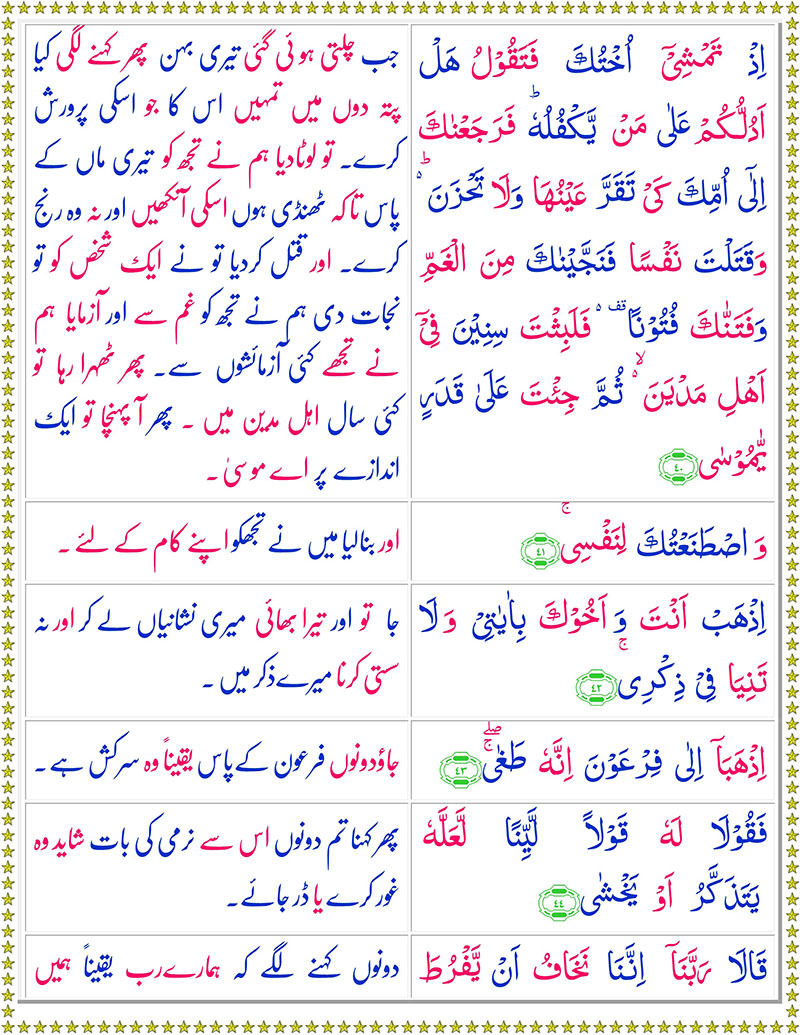 اِذْ تَمْشِیْۤ اُخْتُكَ فَتَقُوْلُ هَلْ
اَدُلُّكُمْ عَلٰى مَنْ یَّكْفُلُهٗ ؕ فَرَجَعْنٰكَ
اِلٰۤى اُمِّكَ كَیْ تَقَرَّ عَیْنُهَا وَلَا تَحْزَنَ ؕ۬
وَقَتَلْتَ نَفْسًا فَنَجَّیْنٰكَ مِنَ الْغَمِّ
وَفَتَنّٰكَ فُتُوْنًا ۫۬ فَلَبِثْتَ سِنِیْنَ فِیْۤ
اَهْلِ مَدْیَنَ ۙ۬ ثُمَّ جِئْتَ عَلٰى قَدَرٍ
یّٰمُوْسٰى ﴿٤٠﴾
جب چلتی ہوئی گئی تیری بہن پھر کہنے لگی کیا
پتہ دوں میں تمہیں اس کا جو اسکی پرورش
کرے۔ تو لوٹادیا ہم نے تجھ کو تیری ماں کے
پاس تاکہ ٹھنڈی ہوں اسکی آنکھیں اور نہ وہ رنج
کرے۔ اور قتل کردیا تو نے ایک شخص کو تو
نجات دی ہم نے تجھ کو غم سے اور آزمایا ہم
نے تجھے کئی آزمائشوں سے۔ پھر ٹھہرا رہا تو
کئی سال اہل مدین میں ۔ پھر آ پہنچا تو ایک
اندازے پر اے موسیٰ ۔
وَ اصْطَنَعْتُكَ لِنَفْسِیْ ۚ ﴿٤١﴾
اور بنالیا میں نے تجھکو اپنے کام کے لئے ۔
اِذْهَبْ اَنْتَ وَ اَخُوْكَ بِاٰیٰتِیْ وَ لَا
تَنِیَا فِیْ ذِكْرِی ۚ ﴿٤٢﴾
جا تو اور تیرا بھائی میری نشانیاں لے کر اور نہ
سستی کرنا میرے ذکر میں ۔
اِذْهَبَاۤ اِلٰى فِرْعَوْنَ اِنَّهٗ طَغٰى ۖۚ ﴿٤٣﴾
جاؤ دونوں فرعون کے پاس یقیناً وہ سرکش ہے ۔
فَقُوْلَا لَهٗ قَوْلًا لَّیِّنًا لَّعَلَّهٗ
یَتَذَكَّرُ اَوْ یَخْشٰى ﴿٤٤﴾
پھر کہنا تم دونوں اس سے نرمی کی بات شاید وہ
غور کرے یا ڈر جائے ۔
قَالَا رَبَّنَاۤ اِنَّنَا نَخَافُ اَنْ یَّفْرُطَ
دونوں کہنے لگے کہ ہمارے رب یقیناً ہمیں